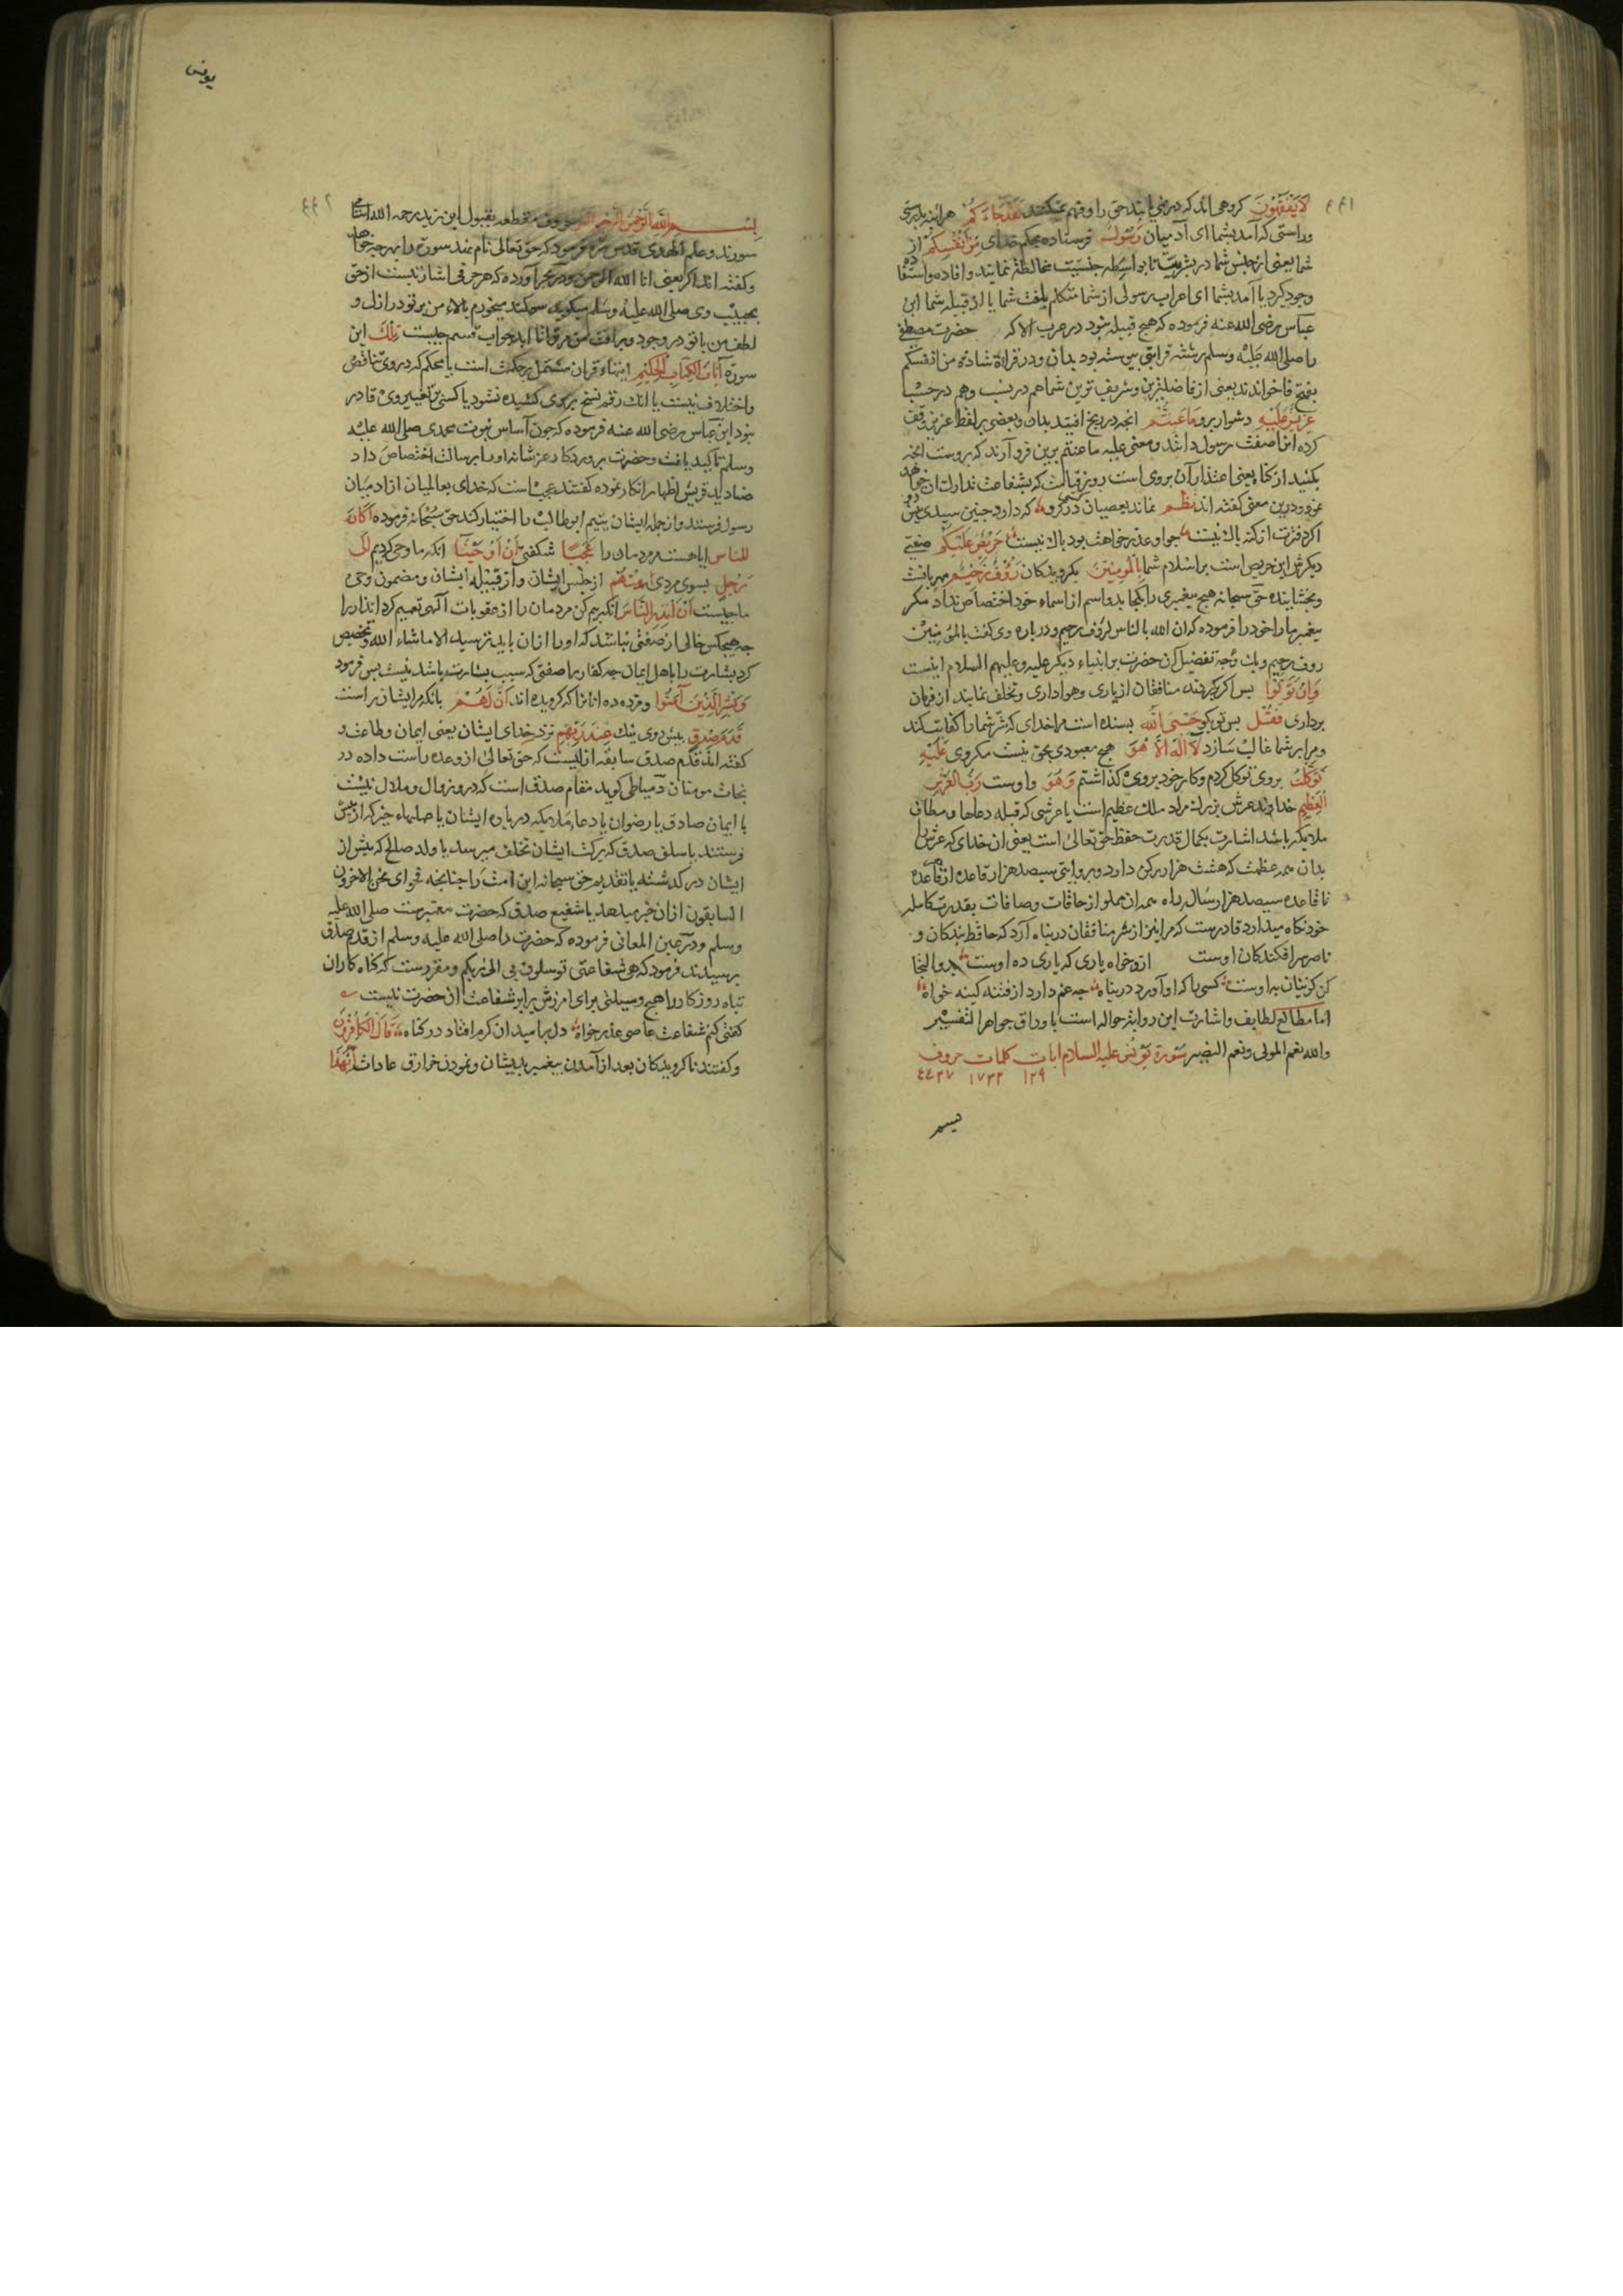 لا یَفْقَهُونَ کروهی اند که در نمی یابند حق را و فهم نمیکنند لَقَدْ جَاءَکُمْ هر اینه بدرستی
و راستی که آمد بشما ای آدمیان رَسُولٌ فرستاده بحکم خدای مِنْ أَنْفُسِکُمْ از
شما یعنی از جنس شما در بشریت تا بواسطه جنسیت مخالطه نمایند و افاده و استفاده
وجود کیرد یا آمد بشما ای اعراب رسولی از شما متکلم بلغت شما یا از قبیله شما ابن
عباس رضی الله عنه فرموده که هیچ قبیله نبود در عرب الا که حضرت مصطفی
را صلی الله علیه وسلم رشته قرابتی پیوسته بود بدان و در قراءة شاذه من انفسکم
بفتح فا خوانده اند یعنی از فاضلترین و شریف ترین شما هم در نسب و هم در حسب
عَزِیزٌ عَلَیْهِ دشوار برو مَا عَنِتُّمْ انچه در رنج افتید بدان و بعضی بر لفظ عزیز وقف
کرده انرا صفت رسول دانند و معنی علیه ما عنتم برین فرو آرند که بروست انچه
بکنید از کناه یعنی اعتذار آن بروی است روز قیامت که بشفاعت تدارک ان خواهد
نمود و درین معنی کفته اند نظم نماند بعصیان کسی در کرو که دارد چنین سیدی پیش رو
اکر دفترت از کنه پاک نیست چو او عذر خواهت بود باک نیست حَرِیصٌ عَلَیْکُمْ صفتی
دیکرش این حریص است بر اسلام شما بِالْمُؤْمِنِینَ بکرویدکان رَؤُفٌ رَحِیمٌ مهربانست
و بخشاینده حق سبحانه هیچ پیغمبری را یکجا بدو اسم از اسماء خود اختصاص نداد مکر
پیغمبر ما را خود را فرموده که ان الله بالناس لرؤف رحیم و درباره وی کفت بالمؤمنین
روف رحیم و یک وجه تفضیل آن حضرت بر انبیاء دیکر علیه و علیهم السلام اینست
فَإِنْ تَوَلَّوْا پس اکر بکردند منافقان از یاری و هواداری و تخلف نمایند از فرمان
برداری فَقُلْ پس تو بکو حَسْبِیَ اللَّهُ بسنده است مرا خدای که شر شما را کفایت کند
و مرا بر شما غالب سازد لا إِلَهَ إِلا هُوَ هیچ معبودی بحق نیست مکر وی عَلَیْهِ
تَوَکَّلْتُ بر وی توکل کردم و کار خود بر وی کذاشتم وَهُوَ و اوست رَبُّ الْعَرْشِ
الْعَظِیمِ خداوند عرش بزرک مراد ملک عظیم است یا عرشی که قبله دعاها و مطاف
ملایکه باشد اشارت بکمال قدرت حفظ حق تعالی است یعنی ان خدای که عرش را
بدان همه عظمت که هشت هزار رکن دارد و بروایتی سیصد هزار قاعده از قاعده
تا قاعده سیصد هزار سال راه همه ان مملو از حافات و صافات بقدرت کامله
خود نکاه میدارد قادرست که مرا نیز از شر منافقان در پناه آرد که حافظ بندکان و
ناصر سرافکندکان اوست ازو خواه یاری که یاری ده اوست بدو التجا
کن کزینان به اوست کسی را که او آورد در پناه چه غم دارد از فتنه کینه خواه
اما مطالع لطایف و اشارت این روایت حواله است باوراق جواهر التفسیر
والله نعم المولی ونعم النصیر سورة یونس علیه السلام ایات کلمات حروف
۱۲۹ ۱۷۳۳ ٤٤٣٧
بسم
یونس
بسم الله الرحمن الرحیم الر حروف مقطعه بقول ابن زید رحمه الله اسامی
سورند و علم الهدی قدس سره فرمود که حق تعالی نام نهد سورة را بهر چه خواهد
و کفته اند الر یعنی انا الله الرحمن و در بحر آورده که هر حرفی اشارتیست از حق
بحبیب وی صلی الله علیه وسلم میکوید سوکند میخورم بالاء من بر تو در ازل و
لطف من با تو در وجود و برافت من بر تو تا ابد و جواب قسم چیست تِلْکَ این
سورة آیاتُ الْکِتَابِ الْحَکِیمِ ایتهاء قران مشتمل بر حکمت است یا محکم که در وی تناقض
و اختلاف نیست یا انک رقم نسخ بر وی کشیده نشود یا کسی بر تغییر وی قادر
نبود ابن عباس رضی الله عنه فرموده که چون آساس نبوت محمدی صلی الله علیه
وسلم تاکید یافت و حضرت پروردکار عز شانه او را برسالت اختصاص داد
صنادید قریش اظهار انکار نموده کفتند عجب است که خدای بعالمیان از ادمیان
رسول فرستند و از جمله ایشان یتیم ابوطالب را اختیار کند حق سبحانه فرموده أَکَانَ
لِلنَّاسِ ایا هست مردمان را عَجَبًا شکفتی أَنْ أَوْحَیْنَا انکه ما وحی کردیم إِلَی
رَجُلٍ بسوی مردی مِنْهُمْ از جنس ایشان و از قبیله ایشان و مضمون وحی
ما چیست أَنْ أَنْذِرِ النَّاسَ انکه بیم کن مردمان را از عقوبات آلهی تعمیم کرد انذار را
چه هیچکس خالی از صفتی نباشد که او را ازان باید ترسید الا ما شاء الله و تخصیص
کرد بشارت را باهل ایمان چه کفار را صفتی که سبب بشارت باشد نیست پس فرمود
وَبَشِّرِ الَّذِینَ آمَنُوا و مژده ده انانرا که کرویده اند أَنَّ لَهُمْ بانکه مر ایشانراست
قَدَمَ صِدْقٍ پیش روی نیک عِنْدَ رَبِّهِمْ نزد خدای ایشان یعنی ایمان و طاعت و
کفته اند قدم صدق سابقه ازلیست که حق تعالی از وعده راست داده در
نجات مومنان دمیاطی کوید مقام صدق است که درو زوال و ملال نیست
با ایمان صادق یا رضوان یا دعاء ملایکه درباره ایشان یا صلهاء خیر که از پیش
فرستند یا سلف صدق که برکت ایشان تخلف میرسد یا ولد صالح که پیش از
ایشان در کدشته یا تقدیم حق سبحانه این امت را چنانچه فحوای نحن الاخرون
السابقون ازان خبر میدهد یا شفیع صدق که حضرت مغمبرست صلی الله علیه
وسلم و در عین المعانی فرموده که حضرت را صلی الله علیه وسلم از قدم صدق
پرسیدند فرمود که هی شفاعتی توسلون بی الی ربکم و مقررست که کناه کاران
تباه روزکار را هیچ وسیلتی برای امرزش برابر شفاعت ان حضرت نیست
کفتی کنم شفاعت عاصی عذر خواه دل بر امید ان کرم افتاد در کناه قَالَ الْکَافِرُونَ
و کفتند ناکرویدکان بعد از آمدن پیغمبر بدیشان و نمودن خوارق عادات إِنَّ هَذَا